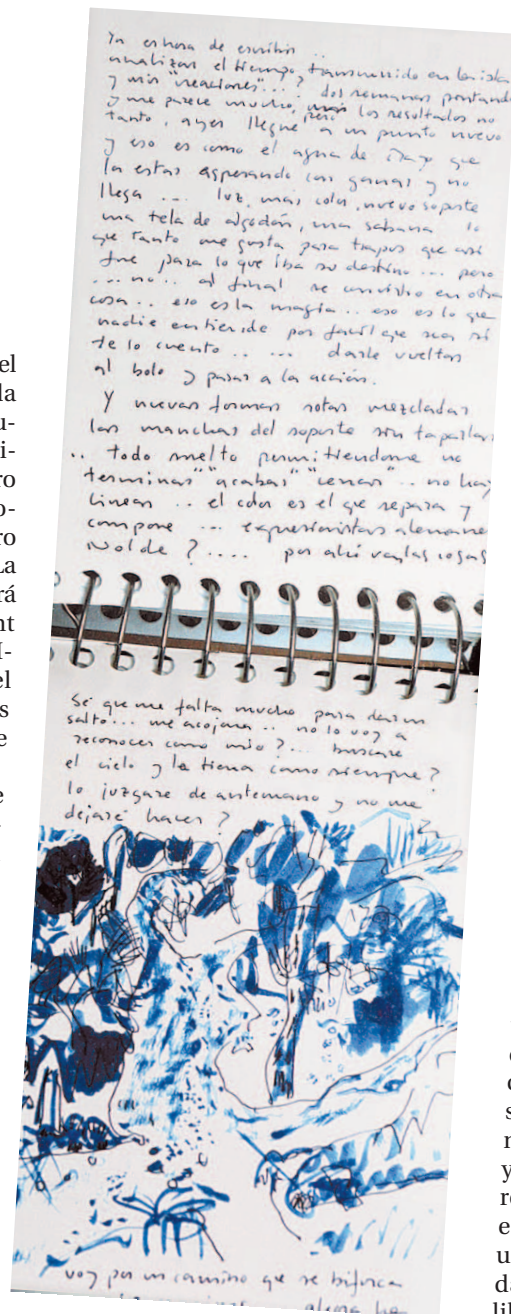 el
la
u-
i-
ro
o-
ro
La
rá
nt
I-
el
s
e
e
Ya es hora de escribir ..
analizar el tiempo, transcurrido en la isla
y mis "reacciones"...? dos semanas pintando
y me parece mucho, pero los resultados no
tanto, ayer llegué a un punto nuevo
y eso es como el agua de mayo que
la estás esperando con ganas y no
llega ... luz, más color, nuevo soporte
una tela de algodón, una sabana lo
que tanto me gusta para trapos que así
fue para lo que iba su destino ... pero
... no .. al final se convirtió en otra
cosa .. eso es la magia .. eso es lo que
nadie entiende por fácil que sea si
te lo cuento .. ... darle vueltas
al bolo y pasar a la acción.
Y nuevas formas rotas mezcladas
las manchas del soporte sin taparlas
.. todo suelto permitiendome no
terminar" "acabar" "cerrar" .. no hay
lineas .. el color es el que separa y
compone ... expresionistas alemanes
Nolde ? .... por ahí van las cosas
Sé que me falta mucho para dar un
salto... me acojona .. no lo voy a
reconocer como mío ?... buscaré
el cielo y la tierra como siempre ?
lo juzgaré de antemano y no me
dejaré hacer ?
voy por un camino que se bifurca
ahora he
e
c
s
n
y
re
e
u
da
lib